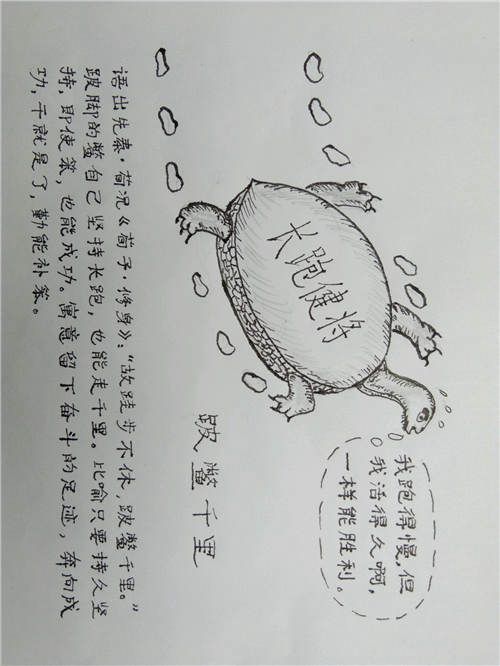 我跑得慢,但
我活得久啊,
一样能胜利。
长跑健将
跛鳖千里
语出先秦·荀况《荀子·修身》:“故跬步不休,跛鳖千里。”
跛脚的鳖自己坚持长跑,也能走千里。比喻只要持久坚
持,即使笨,也能成功。寓意留下奋斗的足迹,奔向成
功,干就是了,勤能补笨。